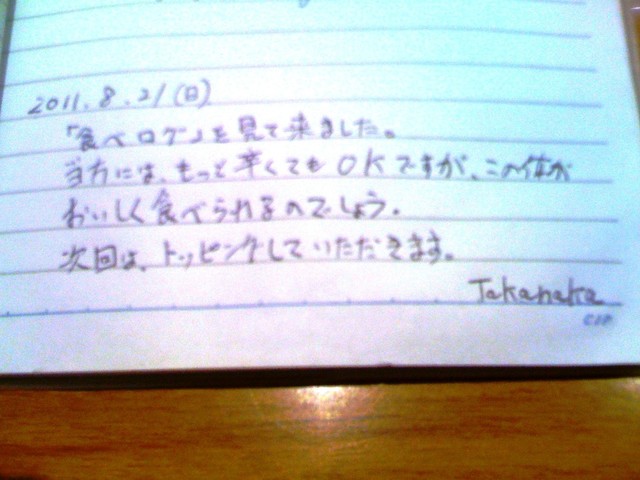 2011.8.21(日)
「食べログ」を見て来ました。
当方には、もっと辛くてもOKですが、この体が
おいしく食べられるのでしょう。
次回は、トッピングしていただきます。
Takanaka